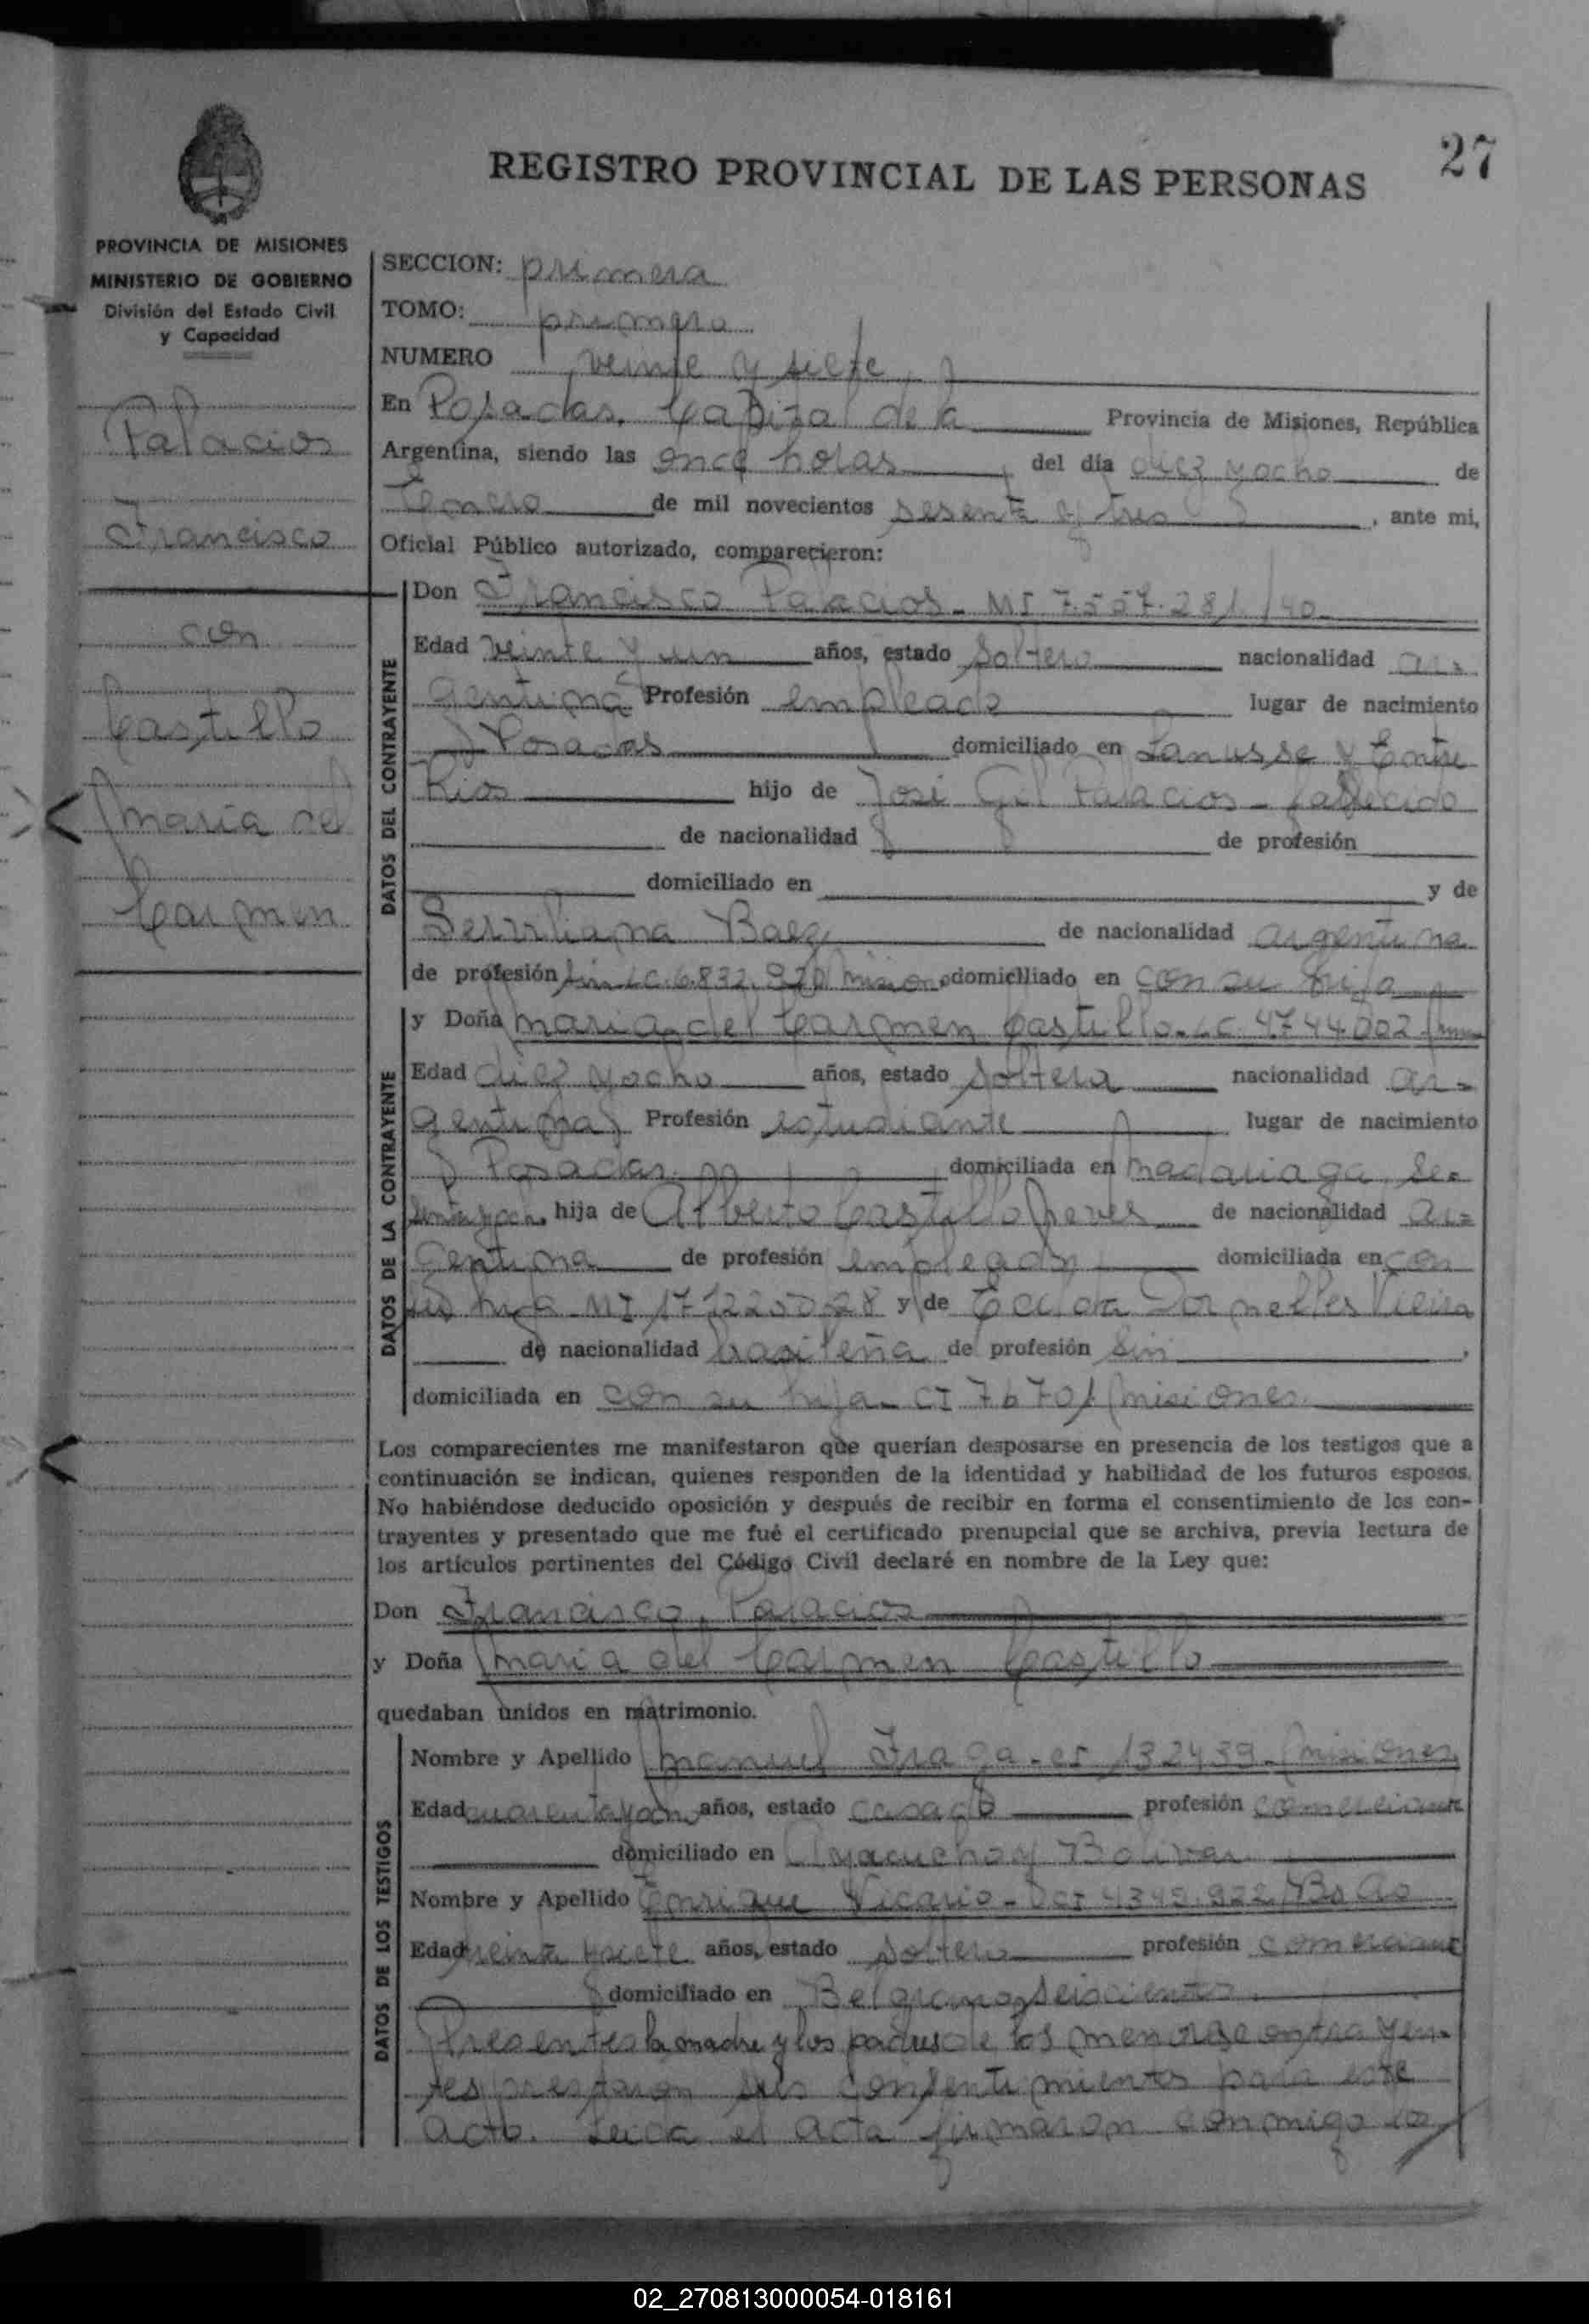 27
REGISTRO PROVINCIAL DE LAS PERSONAS
PROVINCIA DE MISIONES
MINISTERIO DE GOBIERNO
División del Estado Civil
y Capacidad
Palacios
Francisco
con
Castillo
Maria del
Carmen
SECCION: primera
TOMO: primero
NUMERO veinte y siete
En Posadas, Capital de la Provincia de Misiones, República
Argentina, siendo las once horas del día diez y ocho de
Enero de mil novecientos sesenta y tres, ante mi,
Oficial Público autorizado, comparecieron:
DATOS DEL CONTRAYENTE
Don Francisco Palacios - MI 7.557.281/40
Edad veinte y un años, estado soltero nacionalidad ar=
gentina Profesión empleado lugar de nacimiento
Posadas domiciliado en Lanusse y Entre
Rios hijo de José Gil Palacios - fallecido
de nacionalidad de profesión
domiciliado en y de
Baez de nacionalidad argentina
de profesión sin LC. 6.832.920 domiclliado en con su hijo
DATOS DE LA CONTRAYENTE
y Doña Maria del Carmen Castillo - LC 4.744.002
Edad diez y ocho años, estado soltera nacionalidad ar=
gentina Profesión estudiante lugar de nacimiento
Posadas domiciliada en Madariaga se=
hija de Alberto Castillo de nacionalidad ar=
gentina de profesión empleado domiciliada en con
su hija - MI y de Dornelles Vieira
de nacionalidad brasileña de profesión sin,
domiciliada en con su hija - CI 76701 Misiones
Los comparecientes me manifestaron que querían desposarse en presencia de los testigos que a
continuación se indican, quienes responden de la identidad y habilidad de los futuros esposos.
No habiéndose deducido oposición y después de recibir en forma el consentimiento de los con-
trayentes y presentado que me fué el certificado prenupcial que se archiva, previa lectura de
los artículos pertinentes del Código Civil declaré en nombre de la Ley que:
Don Francisco Palacios
y Doña Maria del Carmen Castillo
quedaban unidos en matrimonio.
DATOS DE LOS TESTIGOS
Nombre y Apellido Manuel Fraga - CI 132439 - Misiones
Edad cuarenta y ocho años, estado casado profesión comerciante
domiciliado en Ayacucho y Bolivar
Nombre y Apellido Enrique Vicario - CI 4345.922 Bs As
Edad treinta y siete años, estado soltero profesión comerciante
domiciliado en Belgrano seiscientos
Presentes la madre y los padres de los menores contrayen=
tes prestaron sus consentimientos para este
acto. Leida el acta firmaron conmigo los
02_270813000054-018161